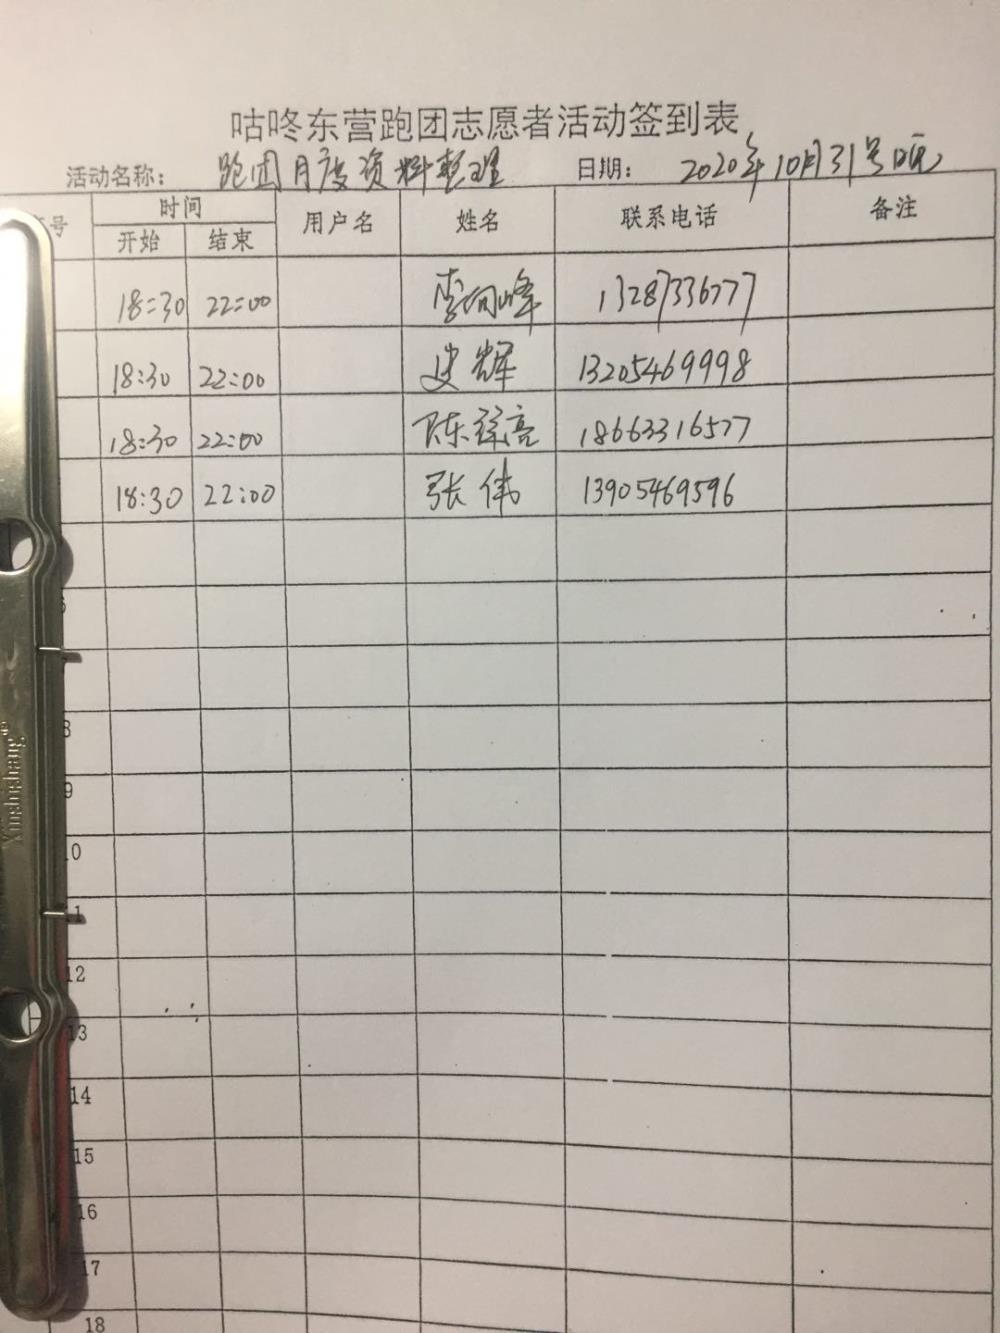 咕咚东营跑团志愿者活动签到表
活动名称： 跑团月度资料整理 日期： 2020年10月31号晚
号 时间 用户名 姓名 联系电话 备注
开始 结束
18:30 22:00 李向峰 13287336777
18:30 22:00 史辉 13205469998
18:30 22:00 陈 亮 18663316577
18:30 22:00 张伟 13905469596
8
9
10
11
12
13
14
15
16
17
18